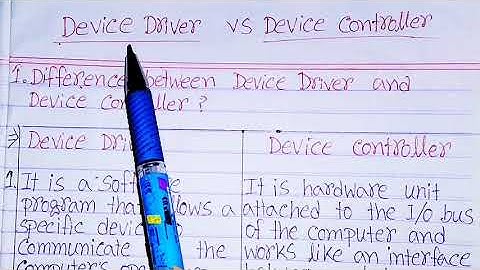 Device Driver vs Device Controller
1. Difference between Device Driver and
Device Controller ?
⇒ Device Dri
Device Controller
1. It is a Soft e
program tha llows a
specific devic s
communicate the
computer's
It is hardware unit
attached to the I/O bus
of the computer and
works like an interface